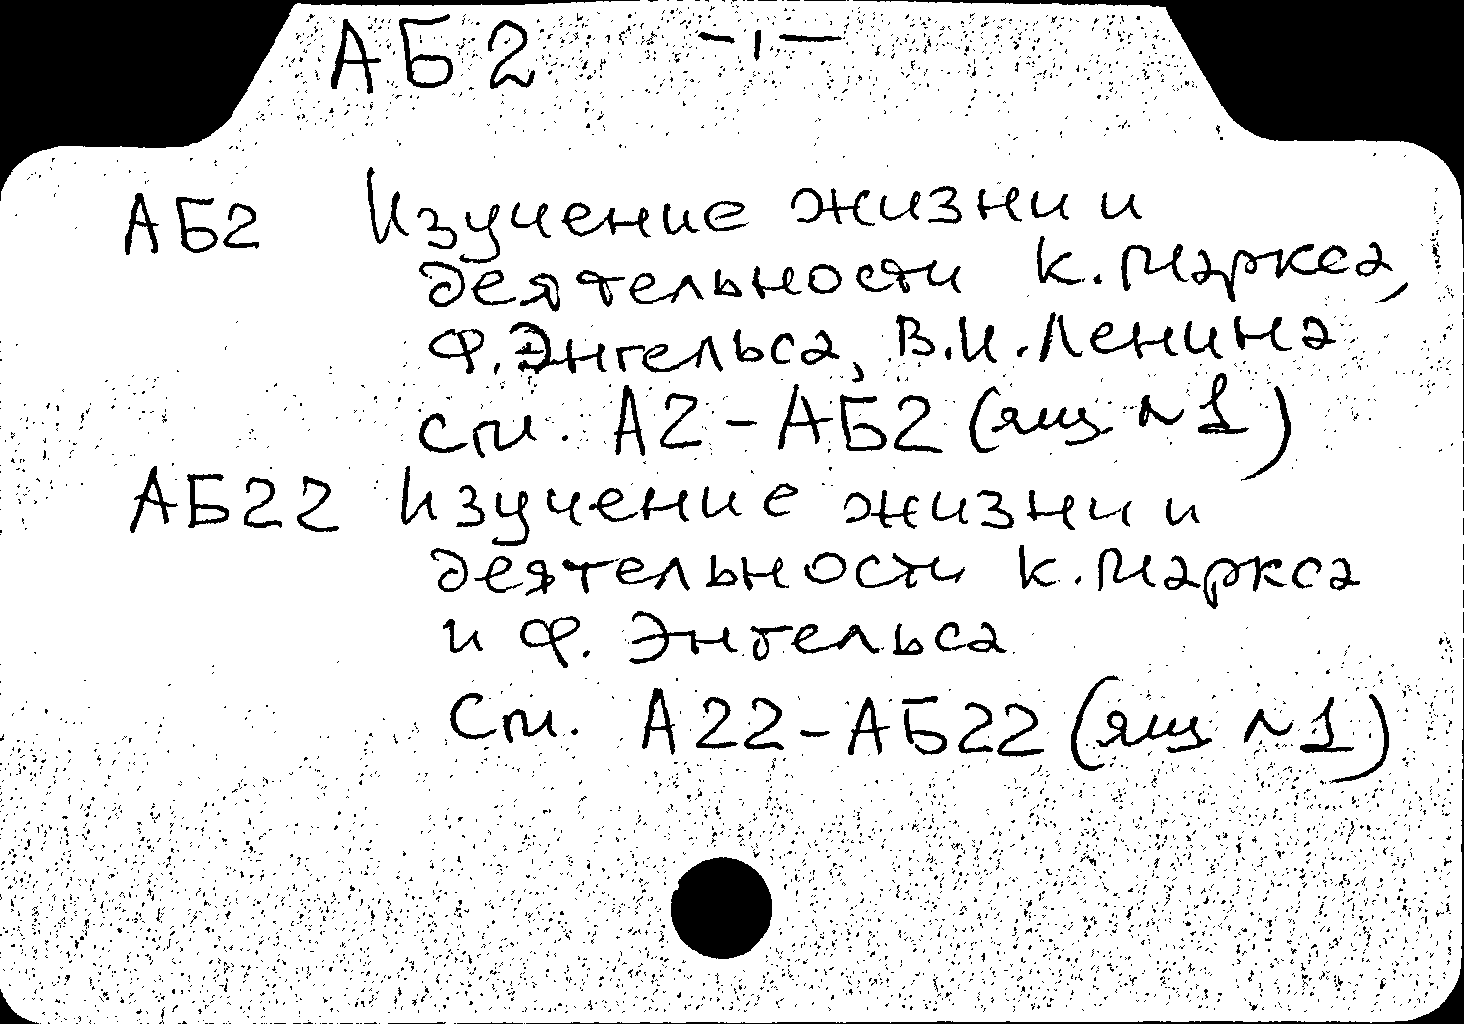 АБ2 -1-
АБ2 Изучение жизни и
деятельности К. Маркса,
Ф. Энгельса, В.И. Ленина
см. А2-АБ2 (ящ N1)
АБ22 Изучение жизни и
деятельности К. Маркса
и Ф. Энгельса
См. А22-АБ22 (ящ N1)